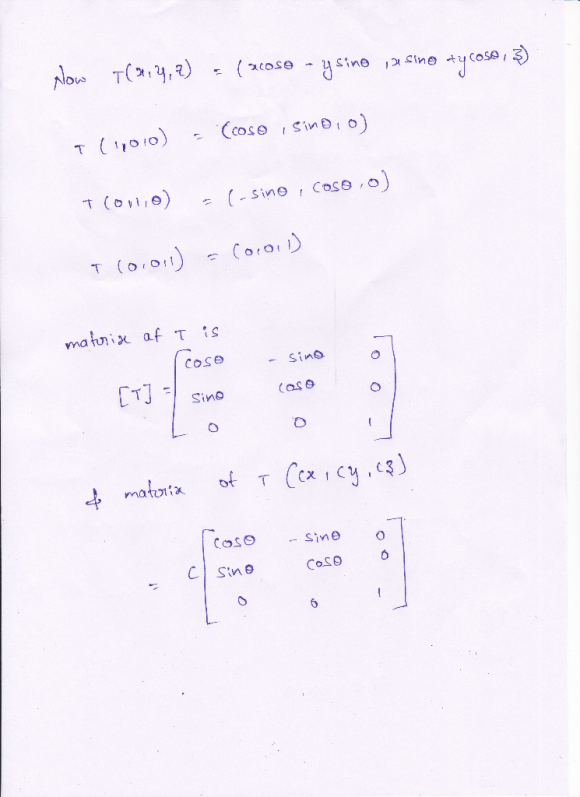 Now T(x,y,z) = (xcosθ - ysinθ, xsinθ + ycosθ, z)
T(1,0,0) = (cosθ, sinθ, 0)
T(0,1,0) = (-sinθ, cosθ, 0)
T(0,0,1) = (0,0,1)
matrix of T is
cosθ - sinθ 0
[T] = sinθ cosθ 0
0 0 1
& matrix of T(cx, cy, cz)
cosθ - sinθ 0
= C sinθ cosθ 0
0 0 1